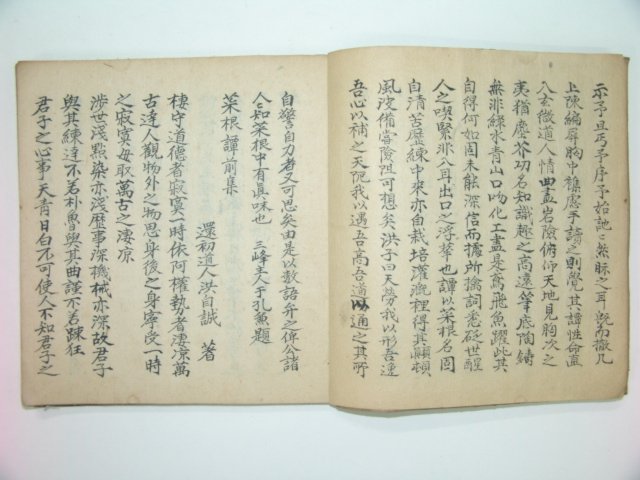 示予且丐予序予始訑〻然眎之耳既而撤几
上陳編屏胸中襍慮手讀之則覺其譚性命直
入玄微道人情曲盡岩險俯仰天地見胸次之
夷猶塵芥功名知識趣之高遠筆底陶鑄
無非綠水青山口吻化工盡是鳶飛魚躍此其
自得何如固未能深信而據所摛詞悉砭世醒
人之喫緊非入耳出口之浮華也譚以菜根名固
自清苦歷練中來亦自栽培灌漑裡得其顚頓
風波備嘗險阻可想矣洪子曰天勞我以形吾逸
吾心以補之天阨我以遇吾亨吾道以通之其所
自警自力者又可思矣由是以數語弁之俾公諸
人〻知菜根中有眞味也 三峰主人于孔兼題
菜根譚前集
還初道人洪自誠 著
棲守道德者寂寞一時依阿權勢者凄凉萬
古達人觀物外之物思身後之身寧受一時
之寂寞毋取萬古之凄凉
涉世淺點染亦淺歷事深機械亦深故君子
與其練達不若朴魯與其曲謹不若踈狂
君子之心事天靑日白不可使人不知君子之